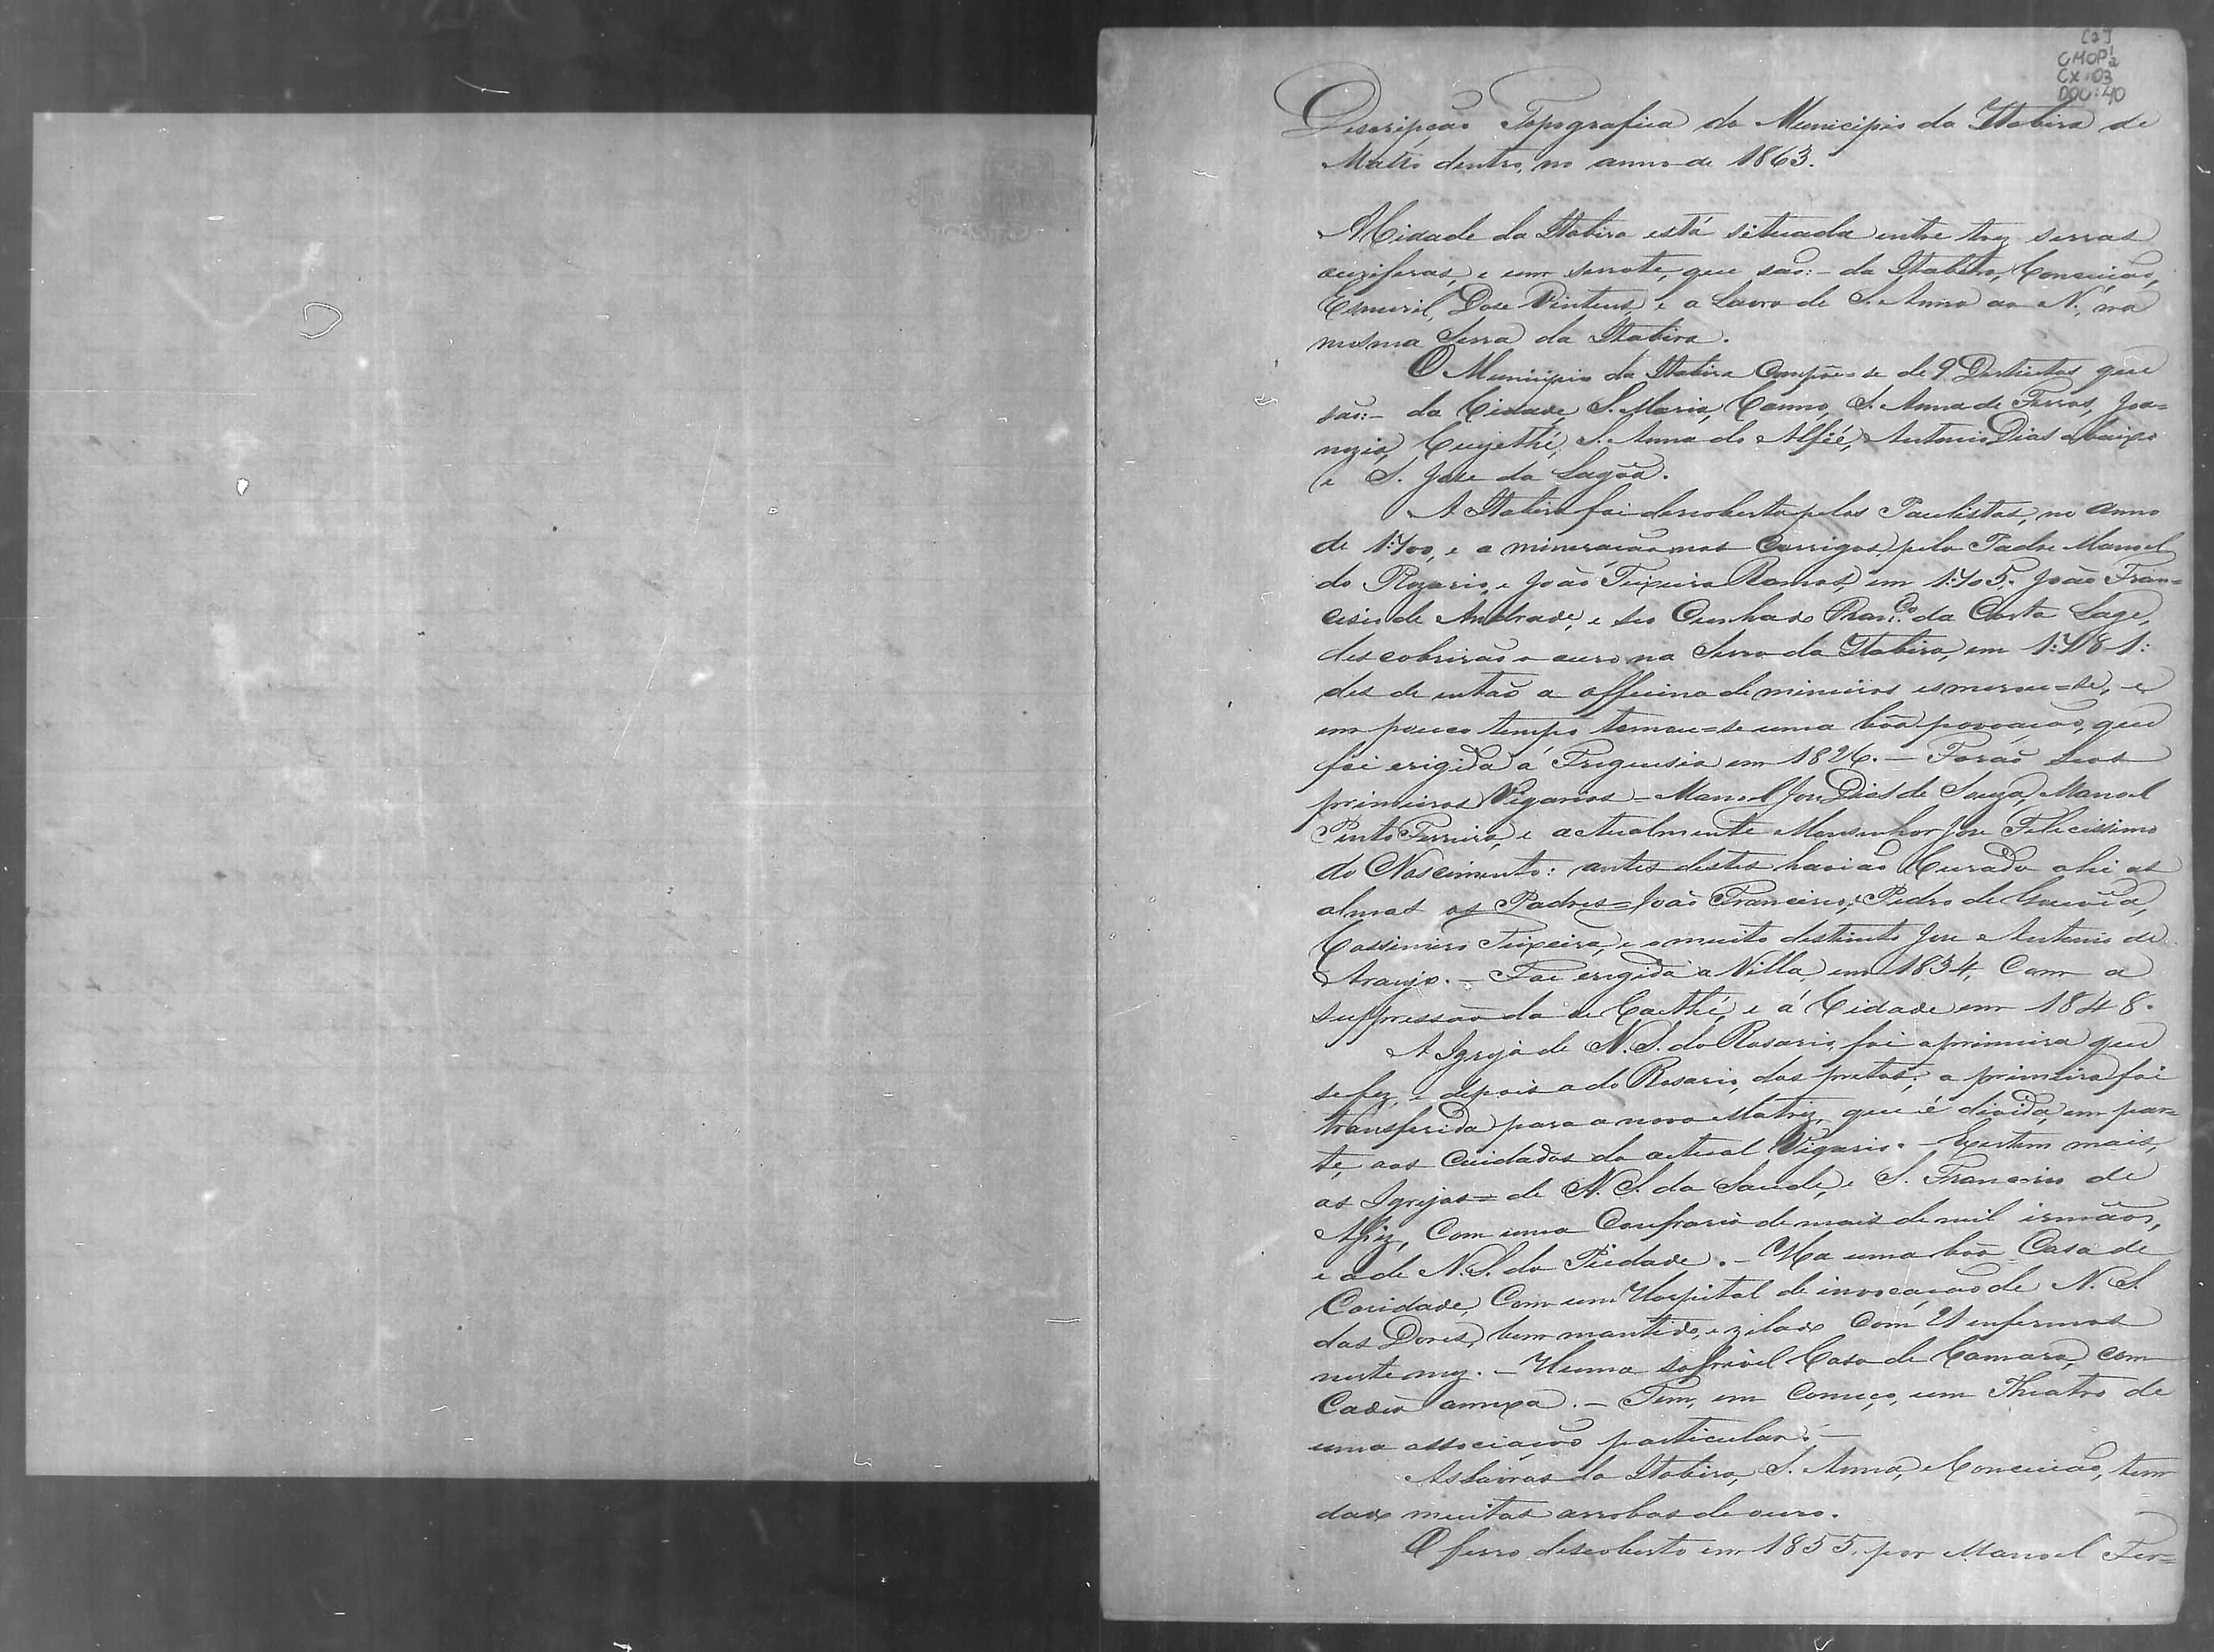 [2]
CMOP½
CX: 03
DOC: 40
Descripção Topografica do Municipio da Itabira de
Matto dentro, no anno de 1863.
A Cidade da Itabira está situada entre trez serras
auriferas, e um serrote, que são: - da Itabira, Conceição,
Esmeril, Dose Vinteins, e a Lavra de S. Anna ao N., na
mesma Serra da Itabira.
O Municipio da Itabira Compõe=se de 9 Districtos que
são: - da Cidade, S. Maria, Carmo, S. Anna de Ferros, Joa=
nezia, Cuyethé, S. Anna do Alfié, Antonio Dias abaixo
e S. Jose da Lagôa.
A Itabira foi descoberta pelos Paulistas, no anno
de 1:700, e a mineração nos Corrigos, pelo Padre Manoel
do Rozario, e João Teixeira Ramos, em 1:705. João Fran=
cisco de Andrade, e seo Cunhado Fran.co da Costa Lage,
descobrirão o ouro na Serra da Itabira, em 1:781:
des de então a officina de mineiros esmerou=se, e
em pouco tempo tornou=se uma bôa povoação, que
foi erigida á Freguesia em 1826. - Forão seos
primeiros Vigarios - Manoel Jose Dias de Souza, Manoel
Pinto Ferreira, e actualmente Monsenhor Jose Felicissimo
do Nascimento: antes destes havião Curado ahi as
almas os Padres = João Francisco, Pedro de Gouvêa,
Cassimiro Teixeira, e o muito distincto Jose Antonio de
Araujo. - Foi erigida a Villa em 1834, Com a
suppressão da de Caethé, e á Cidade em 1848.
A Igreja de N. S. do Rosario, foi a primeira que
se fez, e depois a do Rosario, dos pretos; a primeira foi
transferida para a nova Matriz, que é divida, em par=
te, aos Cuidados do actual Vigario. - Existem mais,
as Igrejas = de N. S. da Saude, e S. Francisco de
Assiz, Com uma Confraria de mais de mil irmãos,
e a de N. S. da Piedade. - Ha uma bôa Casa de
Caridade, Com um Hospital de invocação de N. S.
das Dores, bem mantido, e zelado Com 21 enfermos
neste mez. - Huma sofrivel Casa de Camara, com
Cadeia annexa. - Tem, em Começo, um Theatro de
uma associação particular. -
As Lavras da Itabira, S. Anna, e Conceição, tem
dado muitas arrobas de ouro.
O ferro descoberto em 1855, por Manoel Fer=